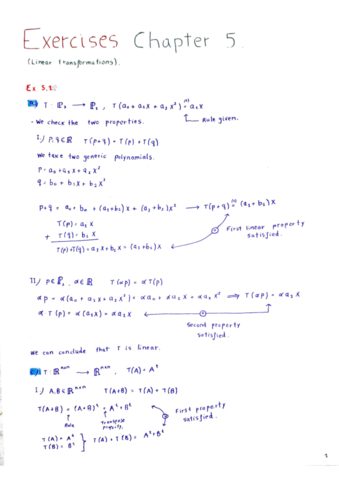 Exercises Chapter 5.
(Linear transformations).
Ex 5.1:
T: P₂ → P₂, T(a₀ + a₁x + a₂x²) = a₁x
- We check the two properties. Rule given.
I.) p, q ∈ P₂ T(p+q) = T(p) + T(q)
We take two generic polynomials.
p = a₀ + a₁x + a₂x²
q = b₀ + b₁x + b₂x²
p+q = a₀ + b₀ + (a₁+b₁)x + (a₂+b₂)x² → T(p+q) = (a₁+b₁)x
T(p) = a₁x
+ T(q) = b₁x
T(p)+T(q) = a₁x + b₁x = (a₁+b₁)x
First linear property
satisfied.
II.) p ∈ P₂, α ∈ R T(αp) = αT(p)
αp = α(a₀ + a₁x + a₂x²) = αa₀ + αa₁x + αa₂x² ⟹ T(αp) = αa₁x
αT(p) = α(a₁x) = αa₁x
Second property
satisfied.
We can conclude that T is linear.
T: R → R, T(A) = Aᵗ
I.) A, B ∈ R T(A+B) = T(A) + T(B)
T(A+B) = (A+B)ᵗ = Aᵗ + Bᵗ
Rule Transpose
property.
First property
satisfied.
T(A) = Aᵗ
T(B) = Bᵗ } T(A) + T(B) = Aᵗ + Bᵗ
1